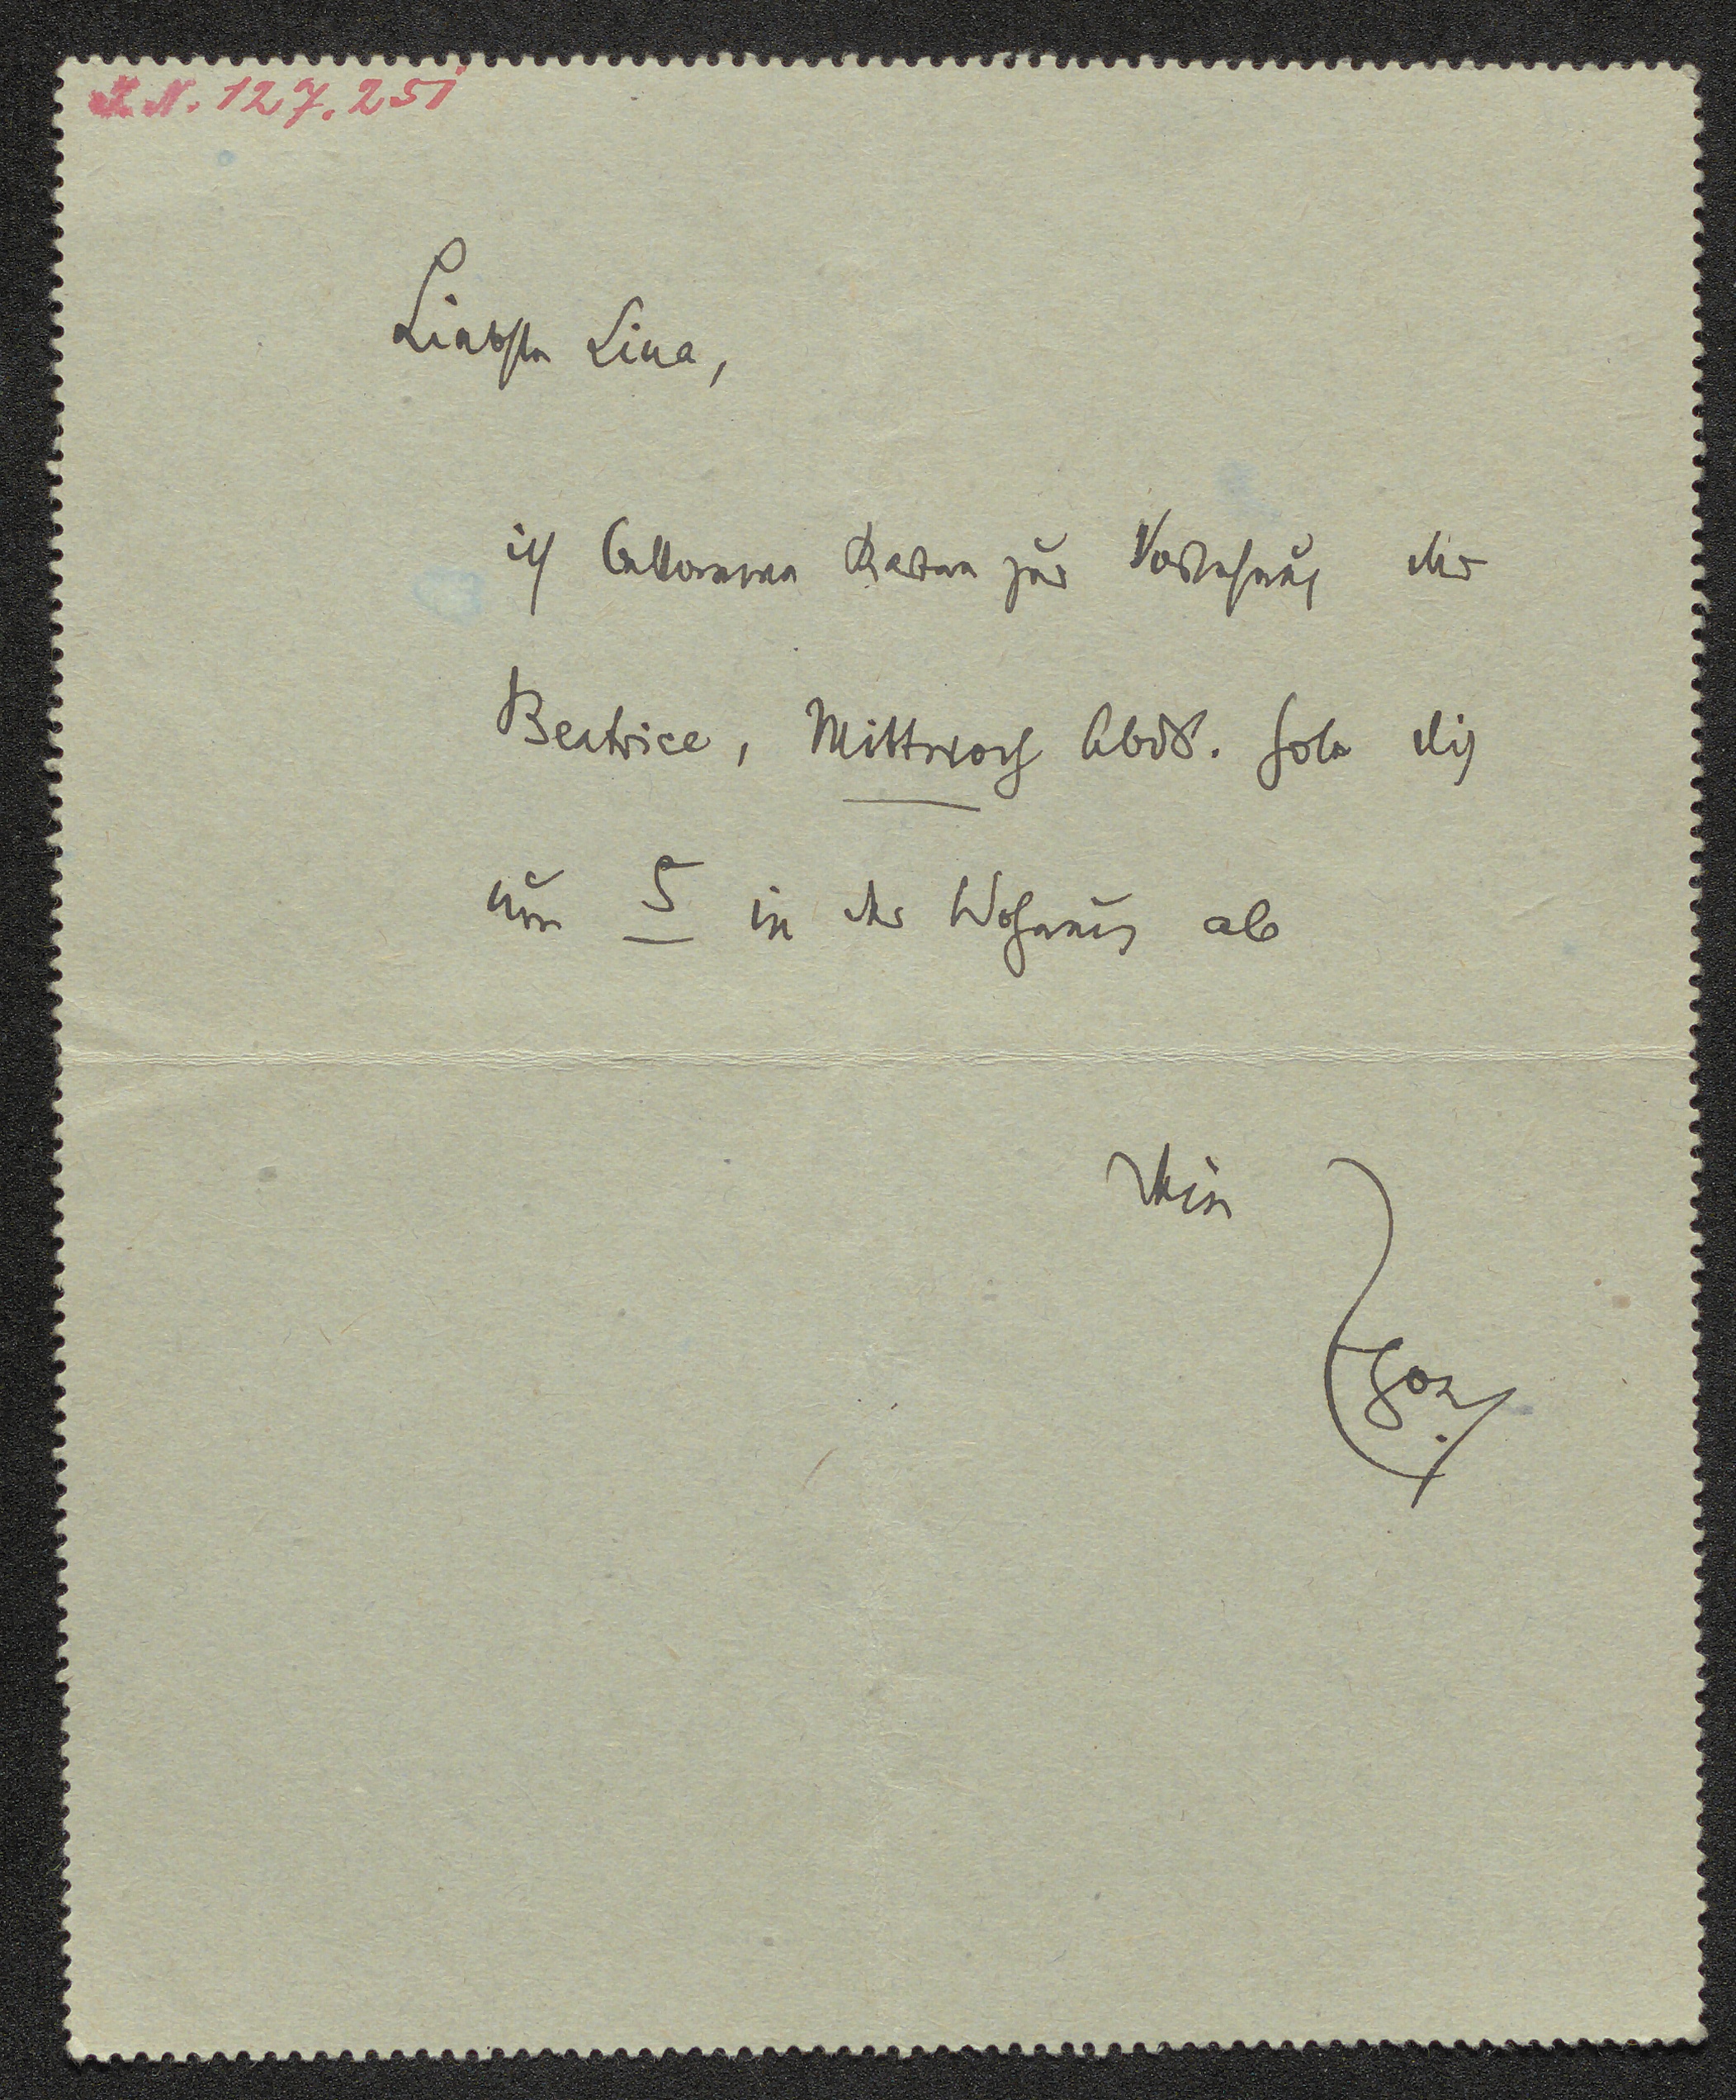 I.N. 127.251
Liebste Lina,
ich bekomme Karten zur Vorlesung der
Beatrice, Mittwoch Abds. hole dich
um 5 in der Wohnung ab
Dein